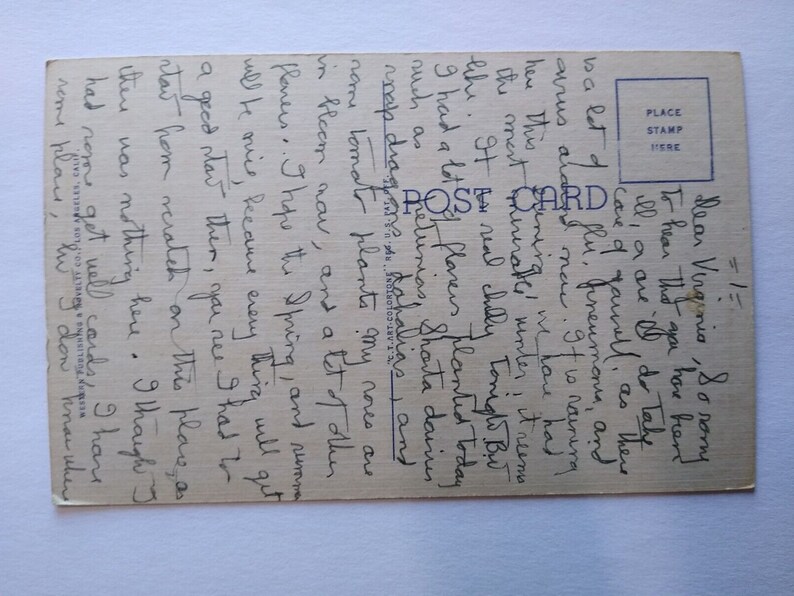 PLACE
STAMP
HERE
POST CARD
= 1 =
Dear Virginia, So sorry
to hear that you have been
ill, a are do take
care of yourself, as there
is a lot of flu, pneumonia, and
virus around now. It is raining
here this evening, we have had
the most miserable winter, it seems
like. It is real chilly tonight. But
I had a lot of flowers planted today
such as Petunias, Shasta daisies
snap dragons, Dahalias, and
some tomato plants. My roses are
in bloom now, and a lot of other
flowers. I hope the Spring, and summer
will be nice, because every thing will get
a good start then, you see I had to
start from scratch on this place, as
there was nothing here. I thought I
had some get well cards, I have
some place, but I don know where
"C.T. ART-COLORTONE" REG. U.S. PAT.
WESTERN PUBLISHING & NOVELTY CO., LOS ANGELES, CALIF.